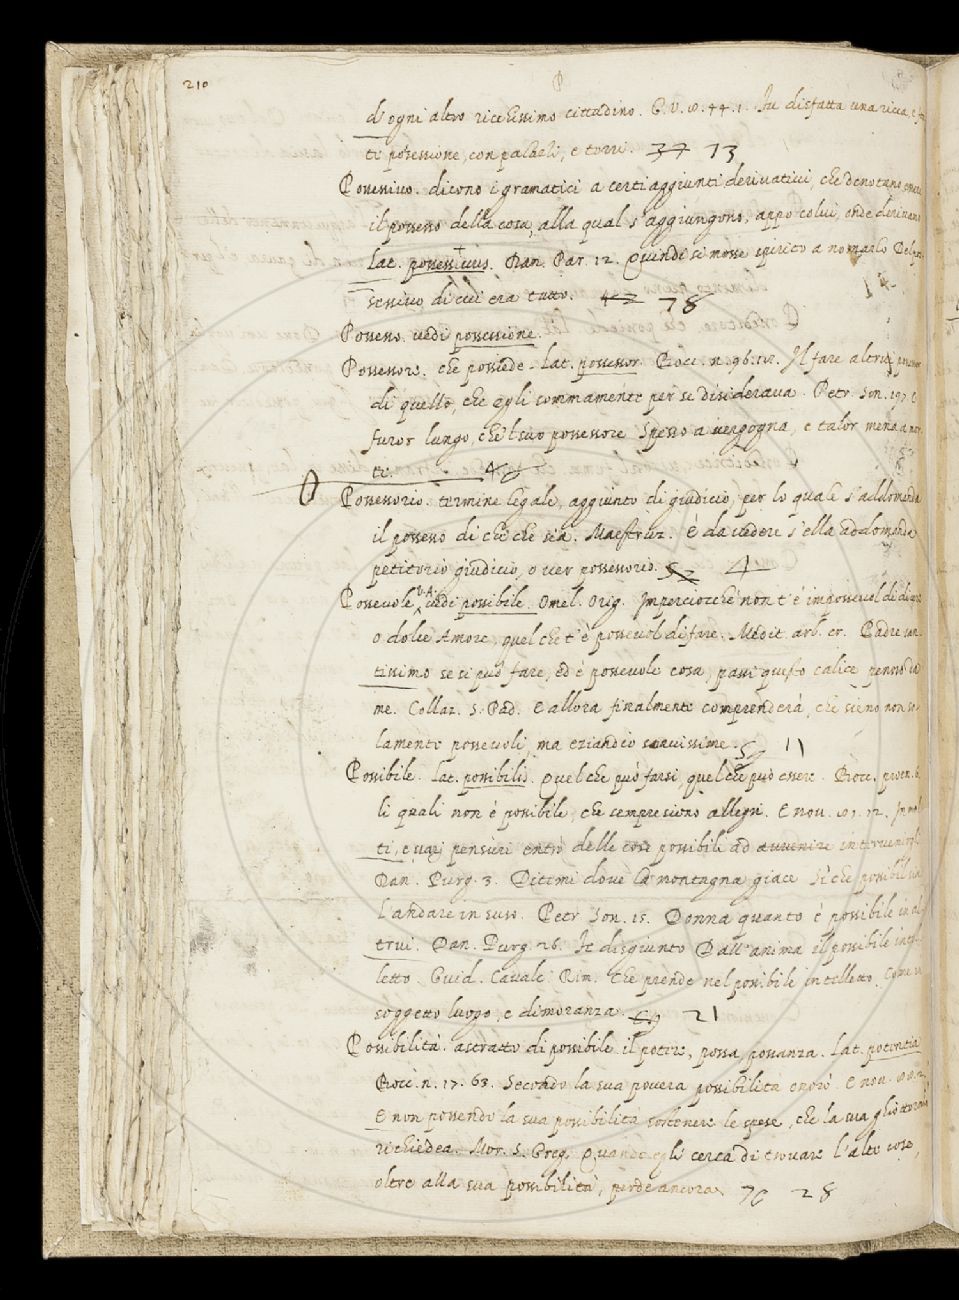 210
P
d'ogni altro ricchissimo cittadino. G.V.10.44.1. Fu disfatta una ricca, e for
te possessione, con palagi, e torri. 37 73
Possessivo. dicono i gramatici a certi aggiunti derivativi, che denotano essere
il possesso della cosa, alla qual s'aggiungono, appo colui, onde derivano
Lat. possessivus. Dan. Par. 12. Quindi si mosse spirito a nomarlo Del pos
sessivo di cui era tutto. 78
14
Possesso. vedi possessione.
Possessore. che possede. Lat. possessor. Bocc. n. 96. Il fare altrui possessore
di quello, che egli sommamente per se disiderava. Petr. Son.
furor lungo, che 'l suo possessore Spesso a vergogna, e talor mena a mor
te. 48
O Possessorio. termine legale, aggiunto di giudicio, per lo quale s'addomanda
il possesso di che che sia. Maestruz. È da vedere s'ella addomanda
petitorio giudicio, o ver possessorio. 52 4
Possevole, V.A. vedi possibile. Omel. Orig. Imperciocchè non t'è impossevol di
o dolce Amore, quel che t'è possevol di fare. Medit. arb. cr. Padre san
tissimo se si può fare, ed è possevole cosa, passi questo calice
me. Collaz. S. Pad. E allora finalmente comprenderà, che sieno non so
lamente possevoli, ma eziandio soavissime. 11
Possibile. Lat. possibilis. Quel che può farsi, quel che può essere. Bocc. proem. 6.
li quali non è possibile, che sempre sieno allegri. E nov.
ti, e varj pensieri entro delle cose possibili ad avvenire
Dan. Purg. 3. Ditemi dove la montagna giace Sì che possibil sia
L'andare in suso. Petr. Son. 15. Donna quanto è possibile in al
trui. Dan. Purg. 26. Sì disgiunto Dall'anima il possibile intel
letto. Guid. Caval. Rim. Che prende nel possibile intelletto, Come in
soggetto luogo, e dimoranza. 69 21
Possibilità. astratto di possibile. il potere, possa, possanza. Lat. potentia
Bocc. n. 17. 63. Secondo la sua povera possibilità onorò. E nov.
E non possendo la sua possibilità sostenere le spese, che la sua
richiedea. Mor. S. Greg. Quando egli cerca di trovare l'alte cose,
oltre alla sua possibilità, perde ancora 28